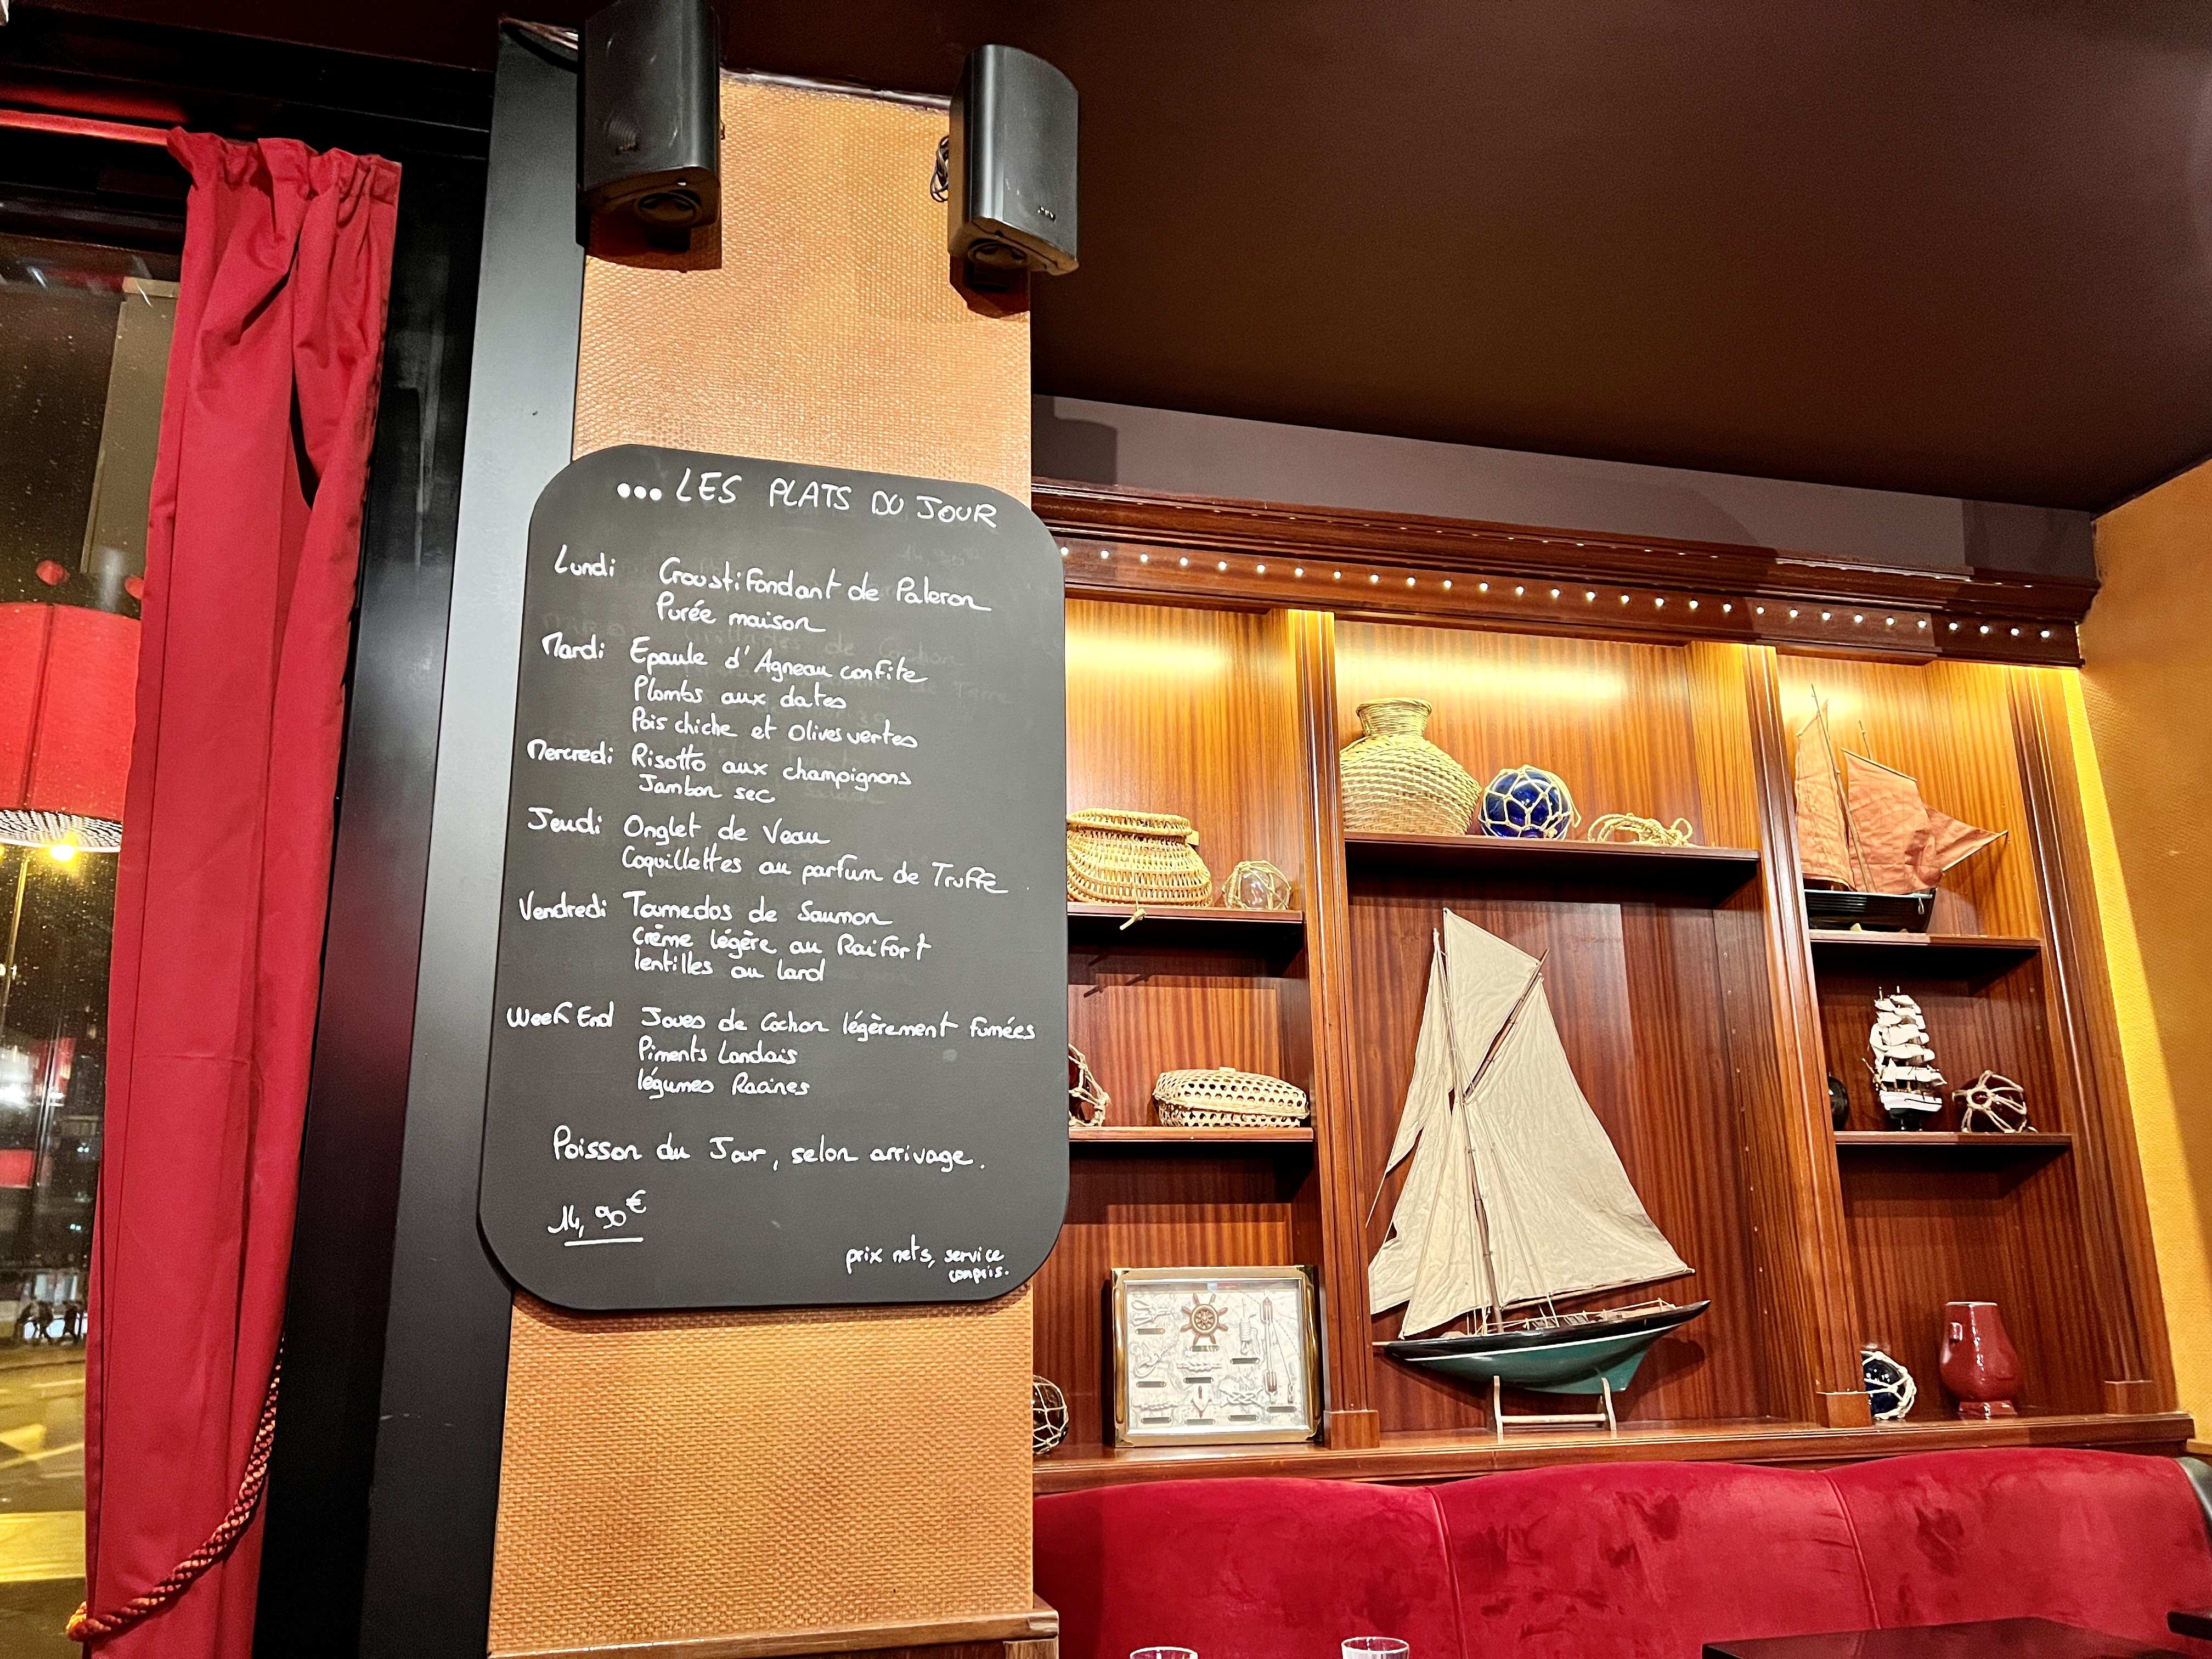 ... LES PLATS DU JOUR
Lundi Croustifondant de Paleron
Purée maison
Mardi Epaule d'Agneau confite
Plombs aux dates
Pois chiche et Olives vertes
Mercredi Risotto aux champignons
Jambon sec
Jeudi Onglet de Veau
Coquillettes au parfum de Truffe
Vendredi Tournedos de Saumon
Crème légère au Raifort
lentilles au lard
Week End Joues de Cochon légèrement fumées
Piments Landais
légumes Racines
Poisson du Jour, selon arrivage.
14,90€
prix nets, service
compris.